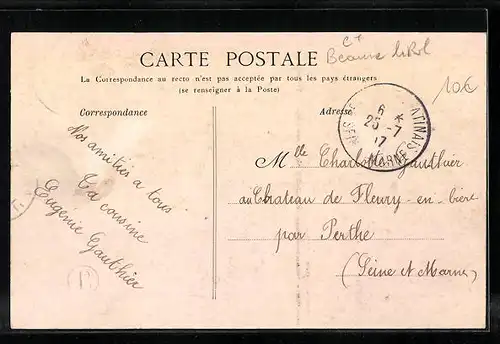 CARTE POSTALE
La Correspondance au recto n'est pas acceptée par tous les pays étrangers
(se renseigner à la Poste)
Correspondance
Adresse
10€
C+
Beaune
Nos amitiés a tous
Ta cousine
Eugenie Gauthier
6 *
25 -7
17
ATINAIS
MARNE
Mlle Charlotte Gauthier
au Chateau de Fleury-en-bière
par Perthe
(Seine et Marne)